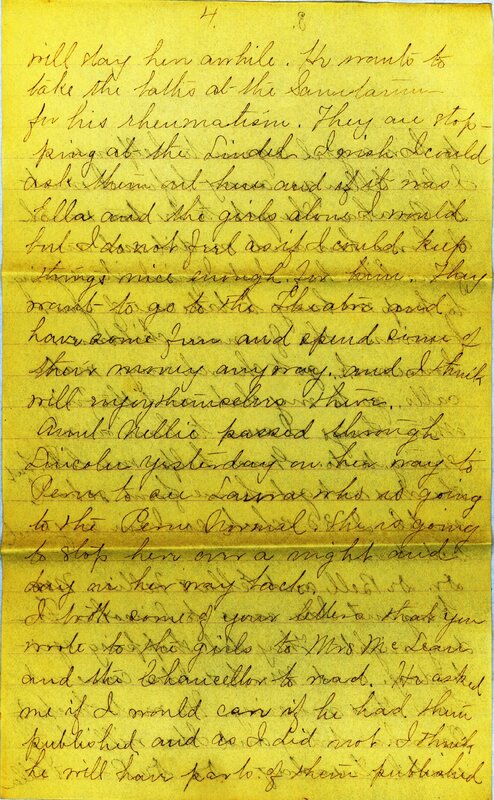 4.
will stay here awhile. He wants to
take the baths at the Sanitarium
for his rheumatism. They are stop-
ping at the Lindel. I wish I could
ask them out here and if it was
Ella and the girls alone I would
but I do not feel as if I could keep
things nice enough for him. They
want to go to the theatre and
have some fun and spend some of
their money anyway. and I think
will enjoy themselves there.
Aunt Nellie passed through
Lincoln yesterday on her way to
Peru to see Laura who is going
to the Peru Normal. She is going
to stop here over a night and
day on her way back.
I took some of your letters that you
wrote to the girls to Mrs McLean
and the Chancellor to read. He asked
me if I would care if he had them
published and as I did not I think
he will have parts of them published